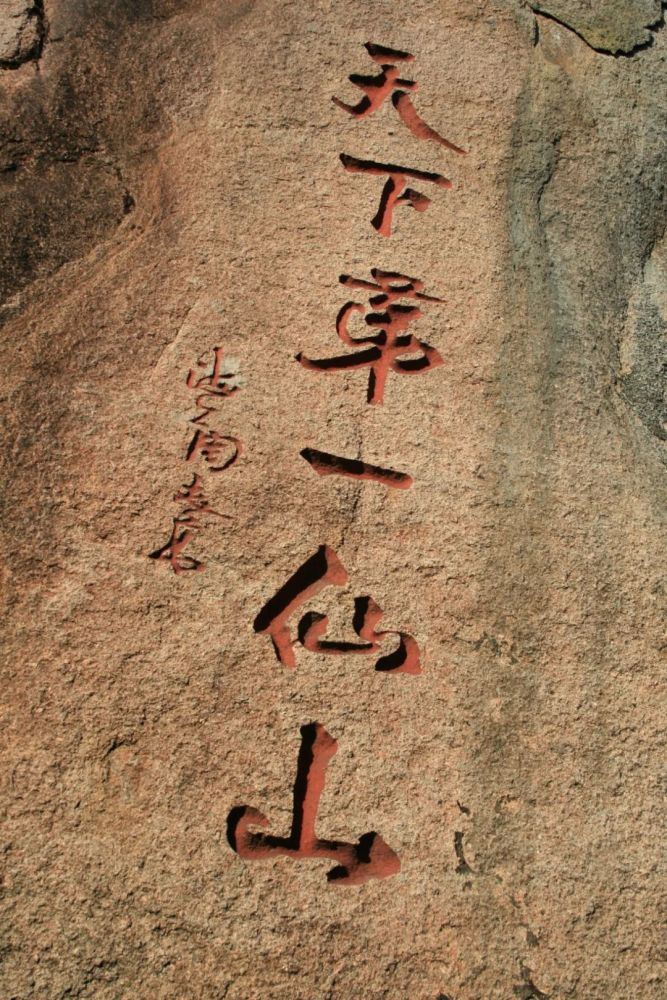 天下第一仙山